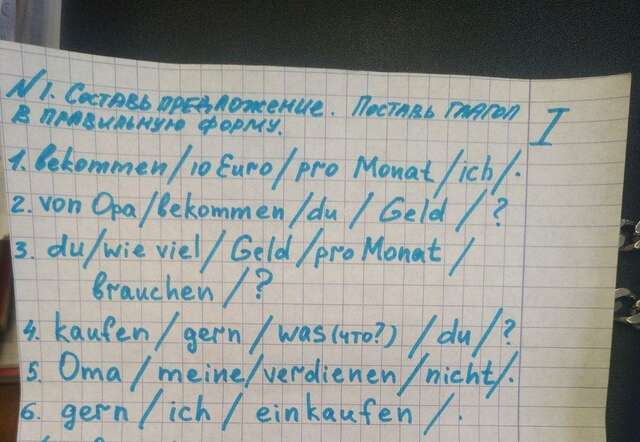 N1. Составь предложение. Поставь глагол
в правильную форму.
I
1. bekommen/10 Euro/pro Monat/ich/.
2. von Opa/bekommen/du/Geld/?
3. du/wie viel/Geld/pro Monat/
brauchen/?
4. kaufen/gern/was (что?)/du/?
5. Oma/meine/verdienen/nicht/.
6. gern/ich/einkaufen/.